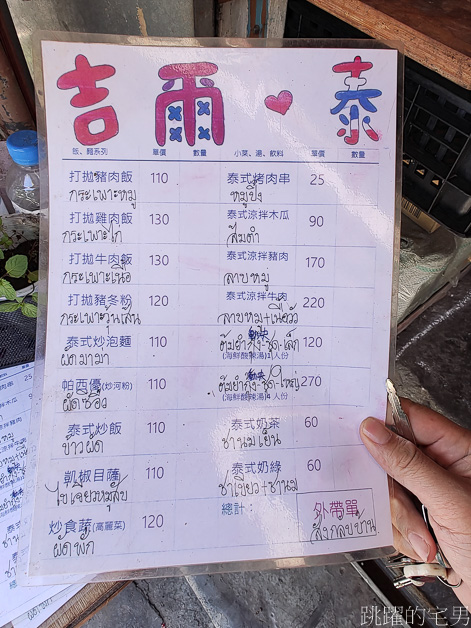 吉爾♥泰
飯、麵系列 單價 數量 小菜、湯、飲料 單價 數量
打拋豬肉飯 110 泰式烤肉串 25
กระเพาะหมู หมูปิ้ง
打拋雞肉飯 130 泰式涼拌木瓜 90
กระเพาะไก่ ส้มตำ
打拋牛肉飯 130 泰式涼拌豬肉 170
กระเพาะเนื้อ ลาบหมู
打拋豬冬粉 120 泰式涼拌牛肉 220
กระเพาะวุ้นเส้น
泰式炒泡麵 110 ต้มยำกุ้ง-ชุด-เล็ก 120
ผัดมาม่า (海鮮酸辣湯)1人份
帕西優(炒河粉) 110 ต้มยำกุ้ง-ชุด-ใหญ่ 270
ผัดซีอิ๊ว (海鮮酸辣湯)4人份
泰式炒飯 110 泰式奶茶 60
ข้าวผัด ชานมเย็น
凱椒目薩 110 泰式奶綠 60
ไข่เจียวหมูสับ ชาเขียว+ชานม
炒食蔬(高麗菜) 120 總計： 外帶單
ผัดผัก สั่งกลับบ้าน
跳躍的宅男